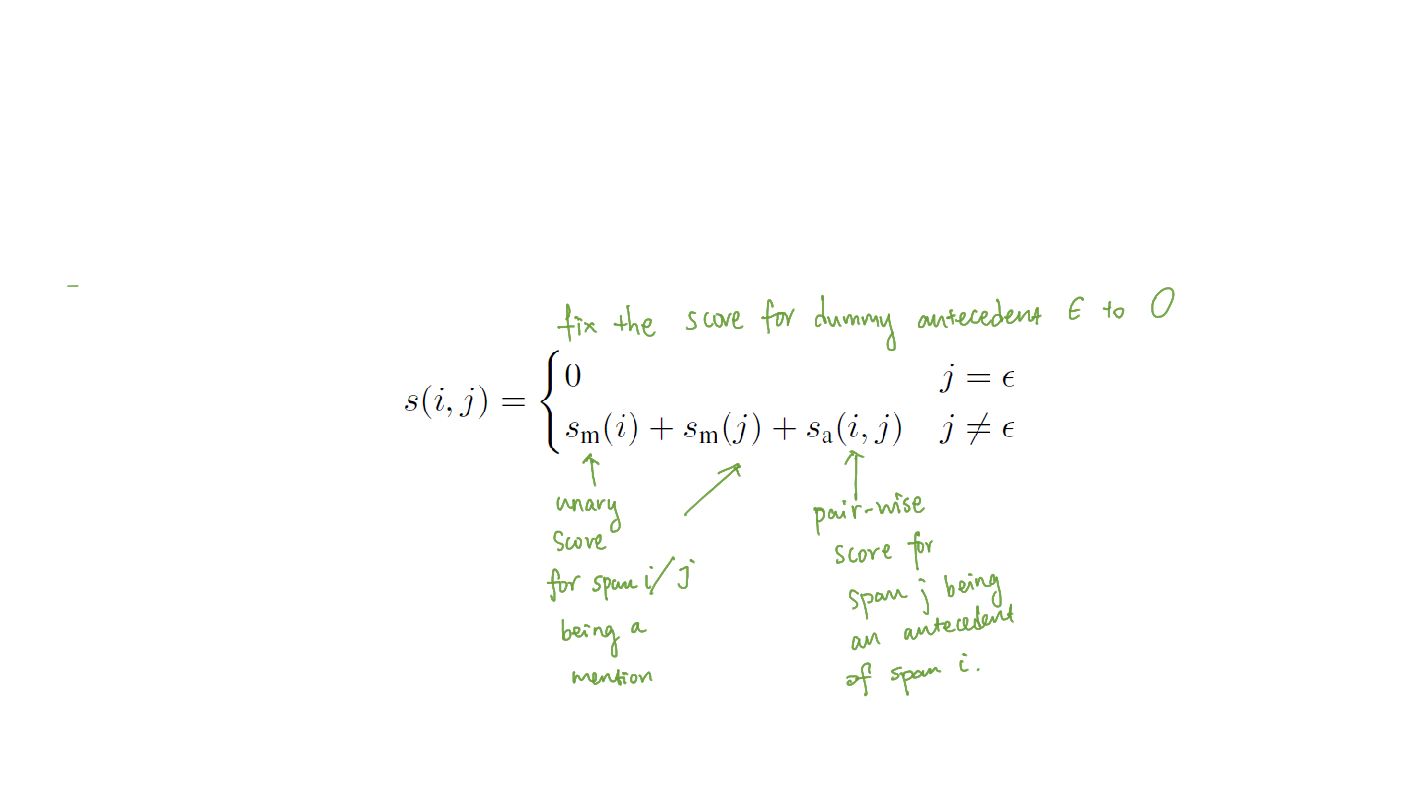 fix the score for dummy antecedent ϵ to 0
s(i, j) = { 0 j = ϵ
s_m(i) + s_m(j) + s_a(i, j) j ≠ ϵ
unary
score
for span i/j
being a
mention
pair-wise
score for
span j being
an antecedent
of span i.